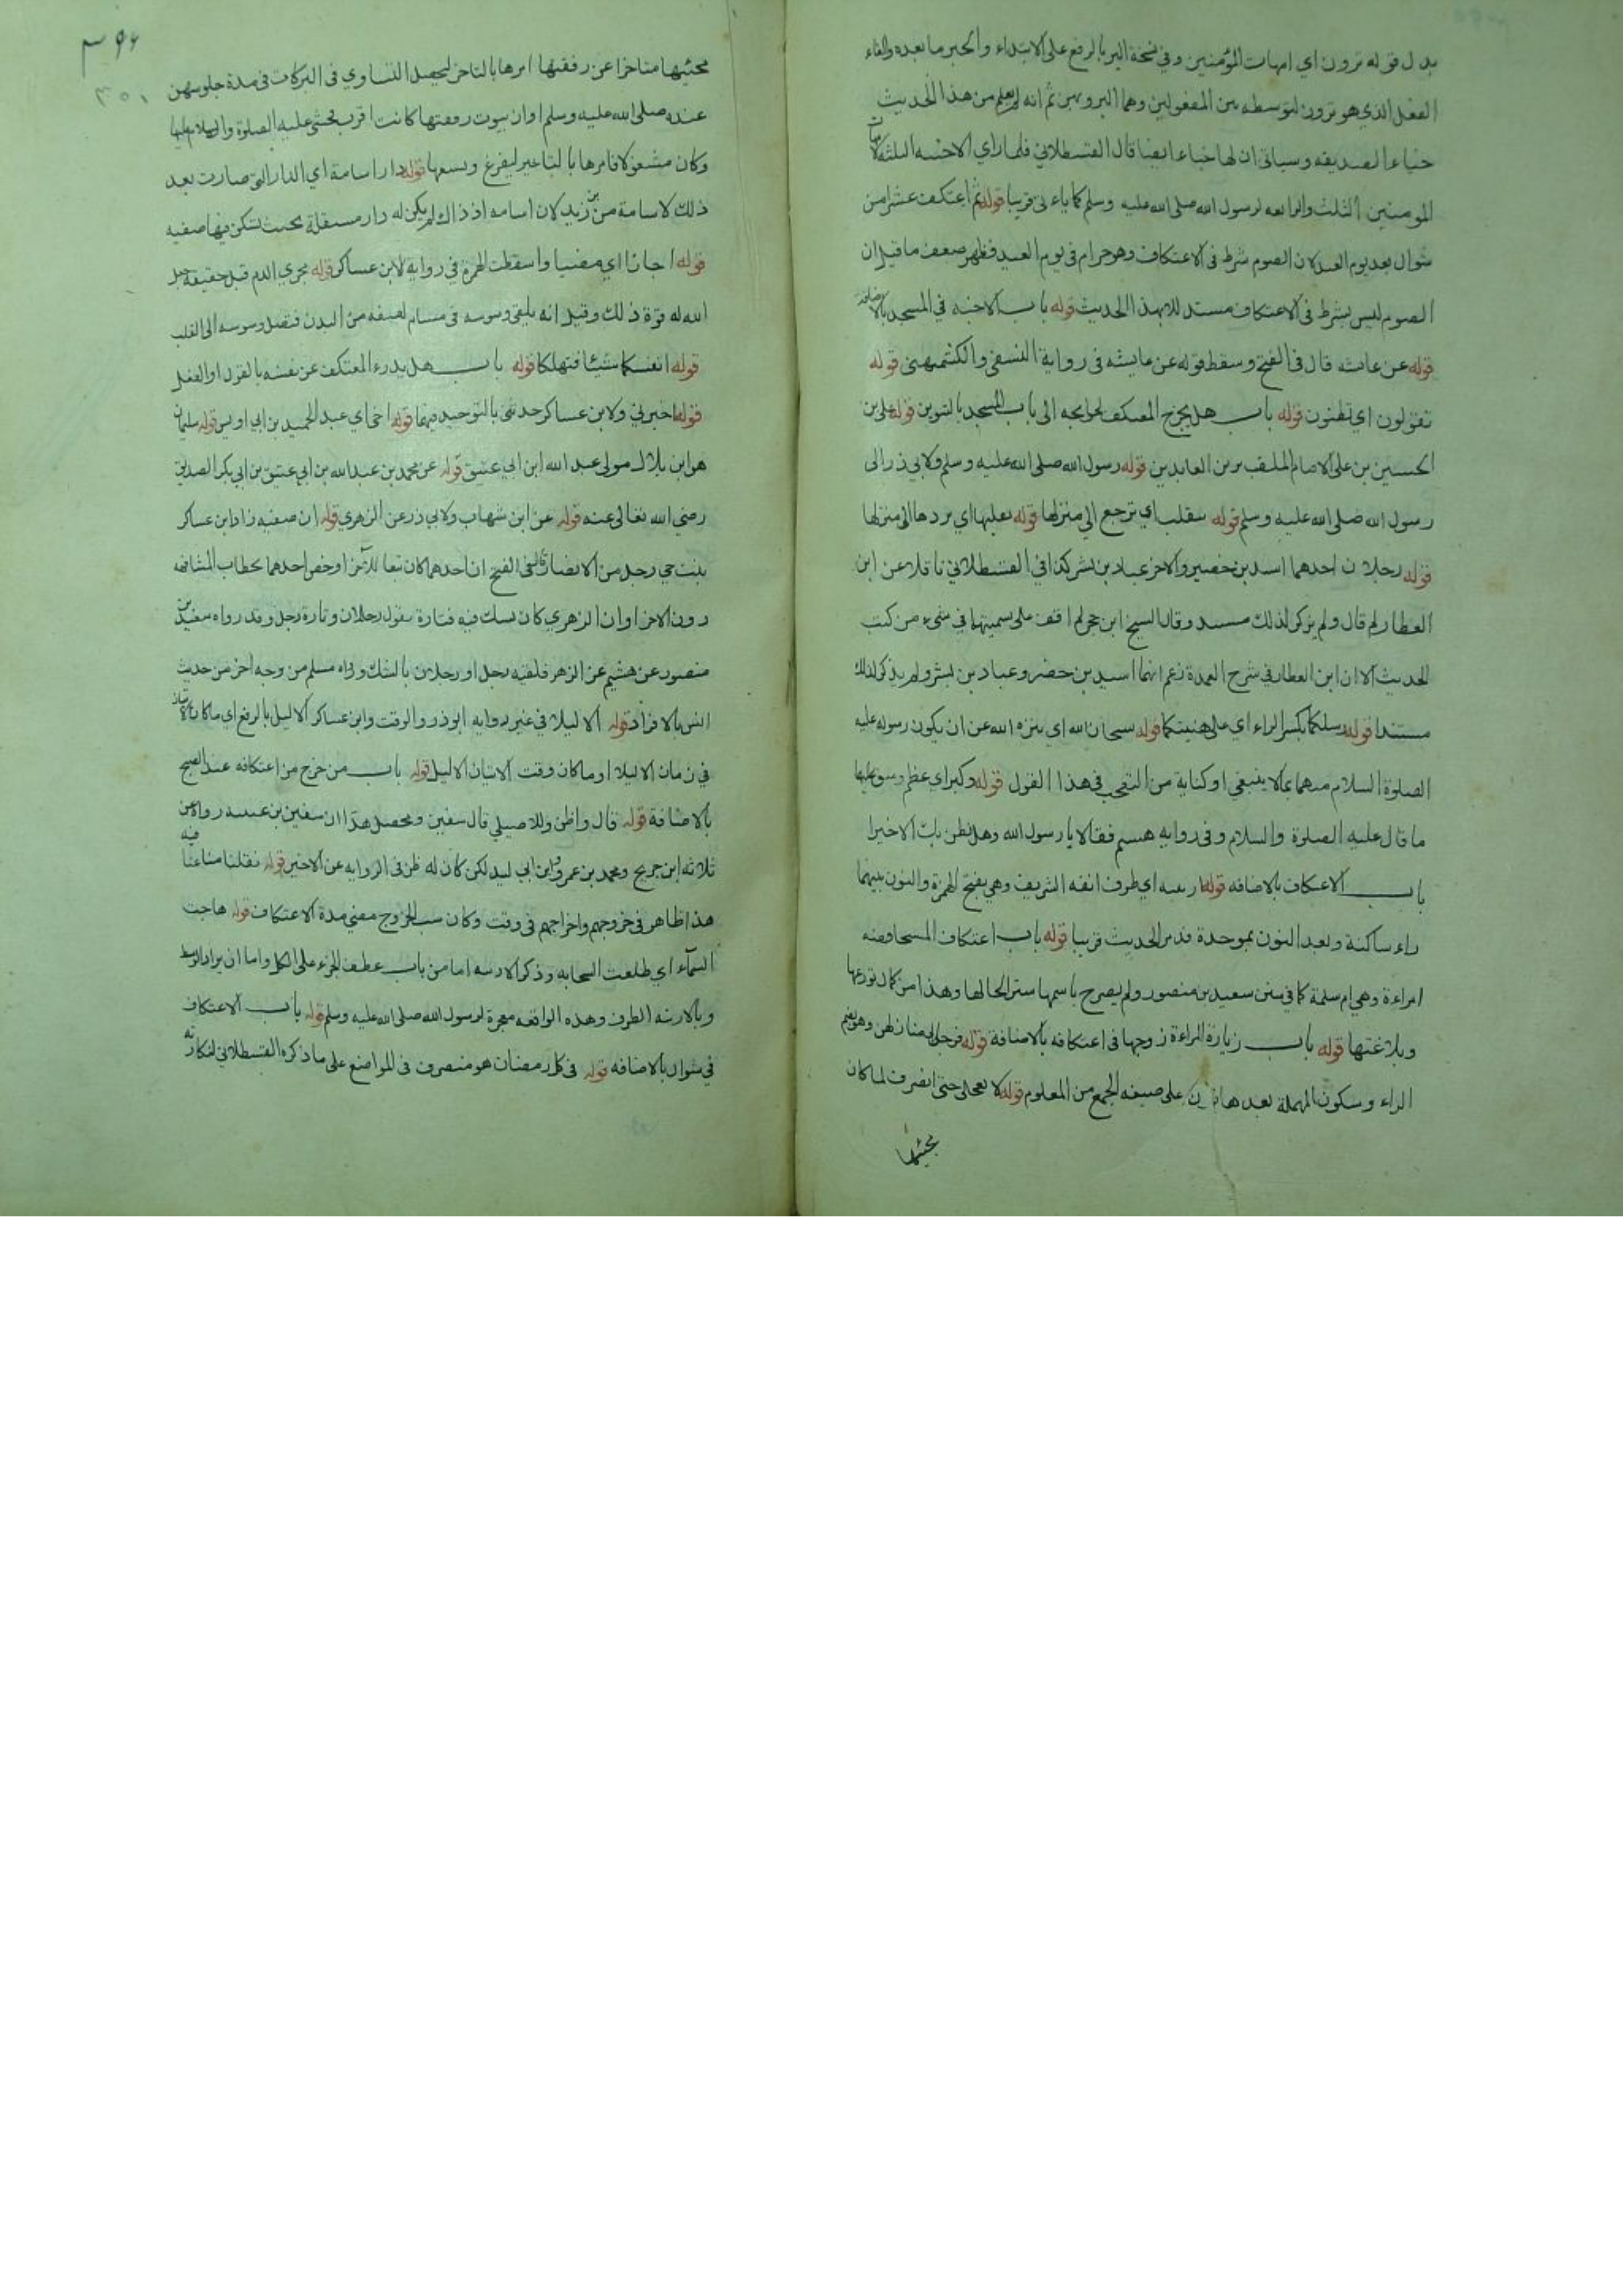 بدل قوله ترون اي امهات المؤمنين وفي نسخة البر بالرفع على الابتداء والخبر ما بعده والغاء
الفعل الذي هو ترون لتوسطه بين المفعولين وهما البر وبهن ثم انه لم يعلم من هذا الحديث
خباء الصديقه وسياتي ان لها خباء ايضا قال القسطلاني فلما راي الاخبيه الثلثة لامهات
المومنين الثلث والرابعه لرسول الله صلى الله عليه وسلم كما ياءتى قريبا قوله ثم اعتكف عشرا من
شوال بعد يوم العيد لان الصوم شرط فى الاعتكاف وهو حرام فى يوم العيد فظهر ضعف ما قيل ان
الصوم ليس بشرط فى الاعتكاف مستدلا بهذا الحديث قوله باب الاخبيه في المسجد بالاضافة
قوله عن عائشه قال فى الفتح وسقط قوله عن عايشه فى رواية النسفى والكشميهنى قوله
تقولون اي تظنون قوله باب هل يخرج المعتكف لحوايجه الى باب المسجد بالتنوين قوله على بن
الحسين بن على الامام الملقب بزين العابدين قوله رسول الله صلى الله عليه وسلم ولابي ذر الى
رسول الله صلى الله عليه وسلم قوله تنقلب اي ترجع الي منزلها قوله يقلبها اي يردها الى منزلها
قوله رجلان احدهما اسيد بن حضير والاخر عباد بن بشر كذا في القسطلاني ناقلا عن ابن
العطار لم قال ولم يذكر لذلك مستند وقال الشيخ ابن حجر لم اقف على تسميتهما في شىء من كتب
الحديث الا ان ابن العطار في شرح العمدة زعم انهما اسيد بن حضير وعباد بن بشر ولم يذكر لذلك
مستندا قوله رسلكما بكسر الراء اي على هنيتكما قوله سبحان الله اي تنزه الله عن ان يكون رسوله عليه
الصلوة السلام متهما بما لا ينبغي او كناية من التعجب فى هذا القول قوله وكبر اي عظم وشق عليهما
ما قال عليه الصلوة والسلام وفى روايه هشيم فقالا يا رسول الله وهل نظن بك الا خيرا
باب الاعتكاف بالاضافه قوله ارنبته اي طرف انفه الشريف وهي بفتح الهمزة والنون بينهما
راء ساكنة وبعد النون بموحدة قد مر الحديث قريبا قوله باب اعتكاف المستحاضه
امراءة وهي ام سلمة كما في سنن سعيد بن منصور ولم يصرح باسمها سترا لحالها وهذا من كمال تورعها
وبلاغتها قوله باب زيارة المراءة زوجها فى اعتكافه بالاضافة قوله فرحن وهو بضم
الراء وسكون المهملة بعدها نون على صيغه الجمع من المعلوم قوله لا تعجلى حتى انصرف لما كان
مجيئها
٣٩٦
٣٥٠
مجيئها متاخرا عن رفقتها امرها بالتاخر ليحصل التساوي فى البركات فى مدة جلوسهن
عنده صلى الله عليه وسلم او ان بيوت رفقتها كانت اقرب فخشى عليه الصلوة والسلام عليها
وكان مشغولا فامرها بالتاخير ليفرغ ويسعها قوله دار اسامة اي الدار التى صارت بعد
ذلك لاسامة بن زيد لان اسامه اذ ذاك لم يكن له دار مستقلة بحيث تسكن فيها صفيه
قوله اجازا اي مضيا واسقطت الهمزة في رواية لابن عساكر قوله مجري الدم قيل حقيقه جعل
الله له قوة ذلك وقيل انه يلقي وسوسه فى مسام لطيفه من البدن فتصل وسوسه الى القلب
قوله انفسكما شيئا فتهلكا قوله باب هل يدرء المعتكف عن نفسه بالقول او الفعل
قوله اخبرني ولابن عساكر حدثنى بالتوحيد فيها قوله اخي اي عبد الحميد بن ابي اويس قوله سليمان
هو ابن بلال مولى عبد الله ابن ابي عتيق قوله عن محمد بن عبد الله بن ابي عتيق بن ابي بكر الصديق
رضي الله تعالى عنه قوله عن ابن شهاب ولابي ذر عن الزهري قوله ان صفيه زاد ابن عساكر
بنت حي رجل من الانصار قال فى الفتح ان احدهما كان تبعا للآخر او خص احدهما بخطاب المشافهه
دون الاخر او ان الزهري كان يشك فيه فتارة يقول رجلان وتارة رجل وقد رواه سعيد بن
منصور عن هشيم عن الزهري فلقيه رجل او رجلان بالشك ورواه مسلم من وجه اخر من حديث
انس بالافراد قوله الا ليلا في غير روايه ابو ذر والوقت وابن عساكر الا ليل بالرفع اي ما كان الاتيان
في زمان الا ليلا او ما كان وقت الاتيان الا ليل قوله باب من خرج من اعتكافه عند الصبح
بالاضافة قوله قال واظن وللاصيلي قال سفين ومحصل هذا ان سفين بن عيينه رواه عن
ثلاثه ابن جريج ومحمد بن عمرو وابن ابي لبيد لكن كان له ظن فى الروايه عن الاخير قوله نقلنا متاعنا فيه
هذا ظاهر فى خروجهم واخراجهم فى وقت وكان سبب الخروج مضي مدة الاعتكاف قوله هاجت
السماء اي طلعت السحابه وذكر الارنبه اما من باب عطف الجزء على الكل واما ان يراد الوسط
وبالارنبه الطرف وهذه الواقعه معجزة لرسول الله صلى الله عليه وسلم قوله باب الاعتكاف
في شوال بالاضافه قوله فى كل رمضان هو منصرف فى المواضع على ما ذكره القسطلاني لنكارته